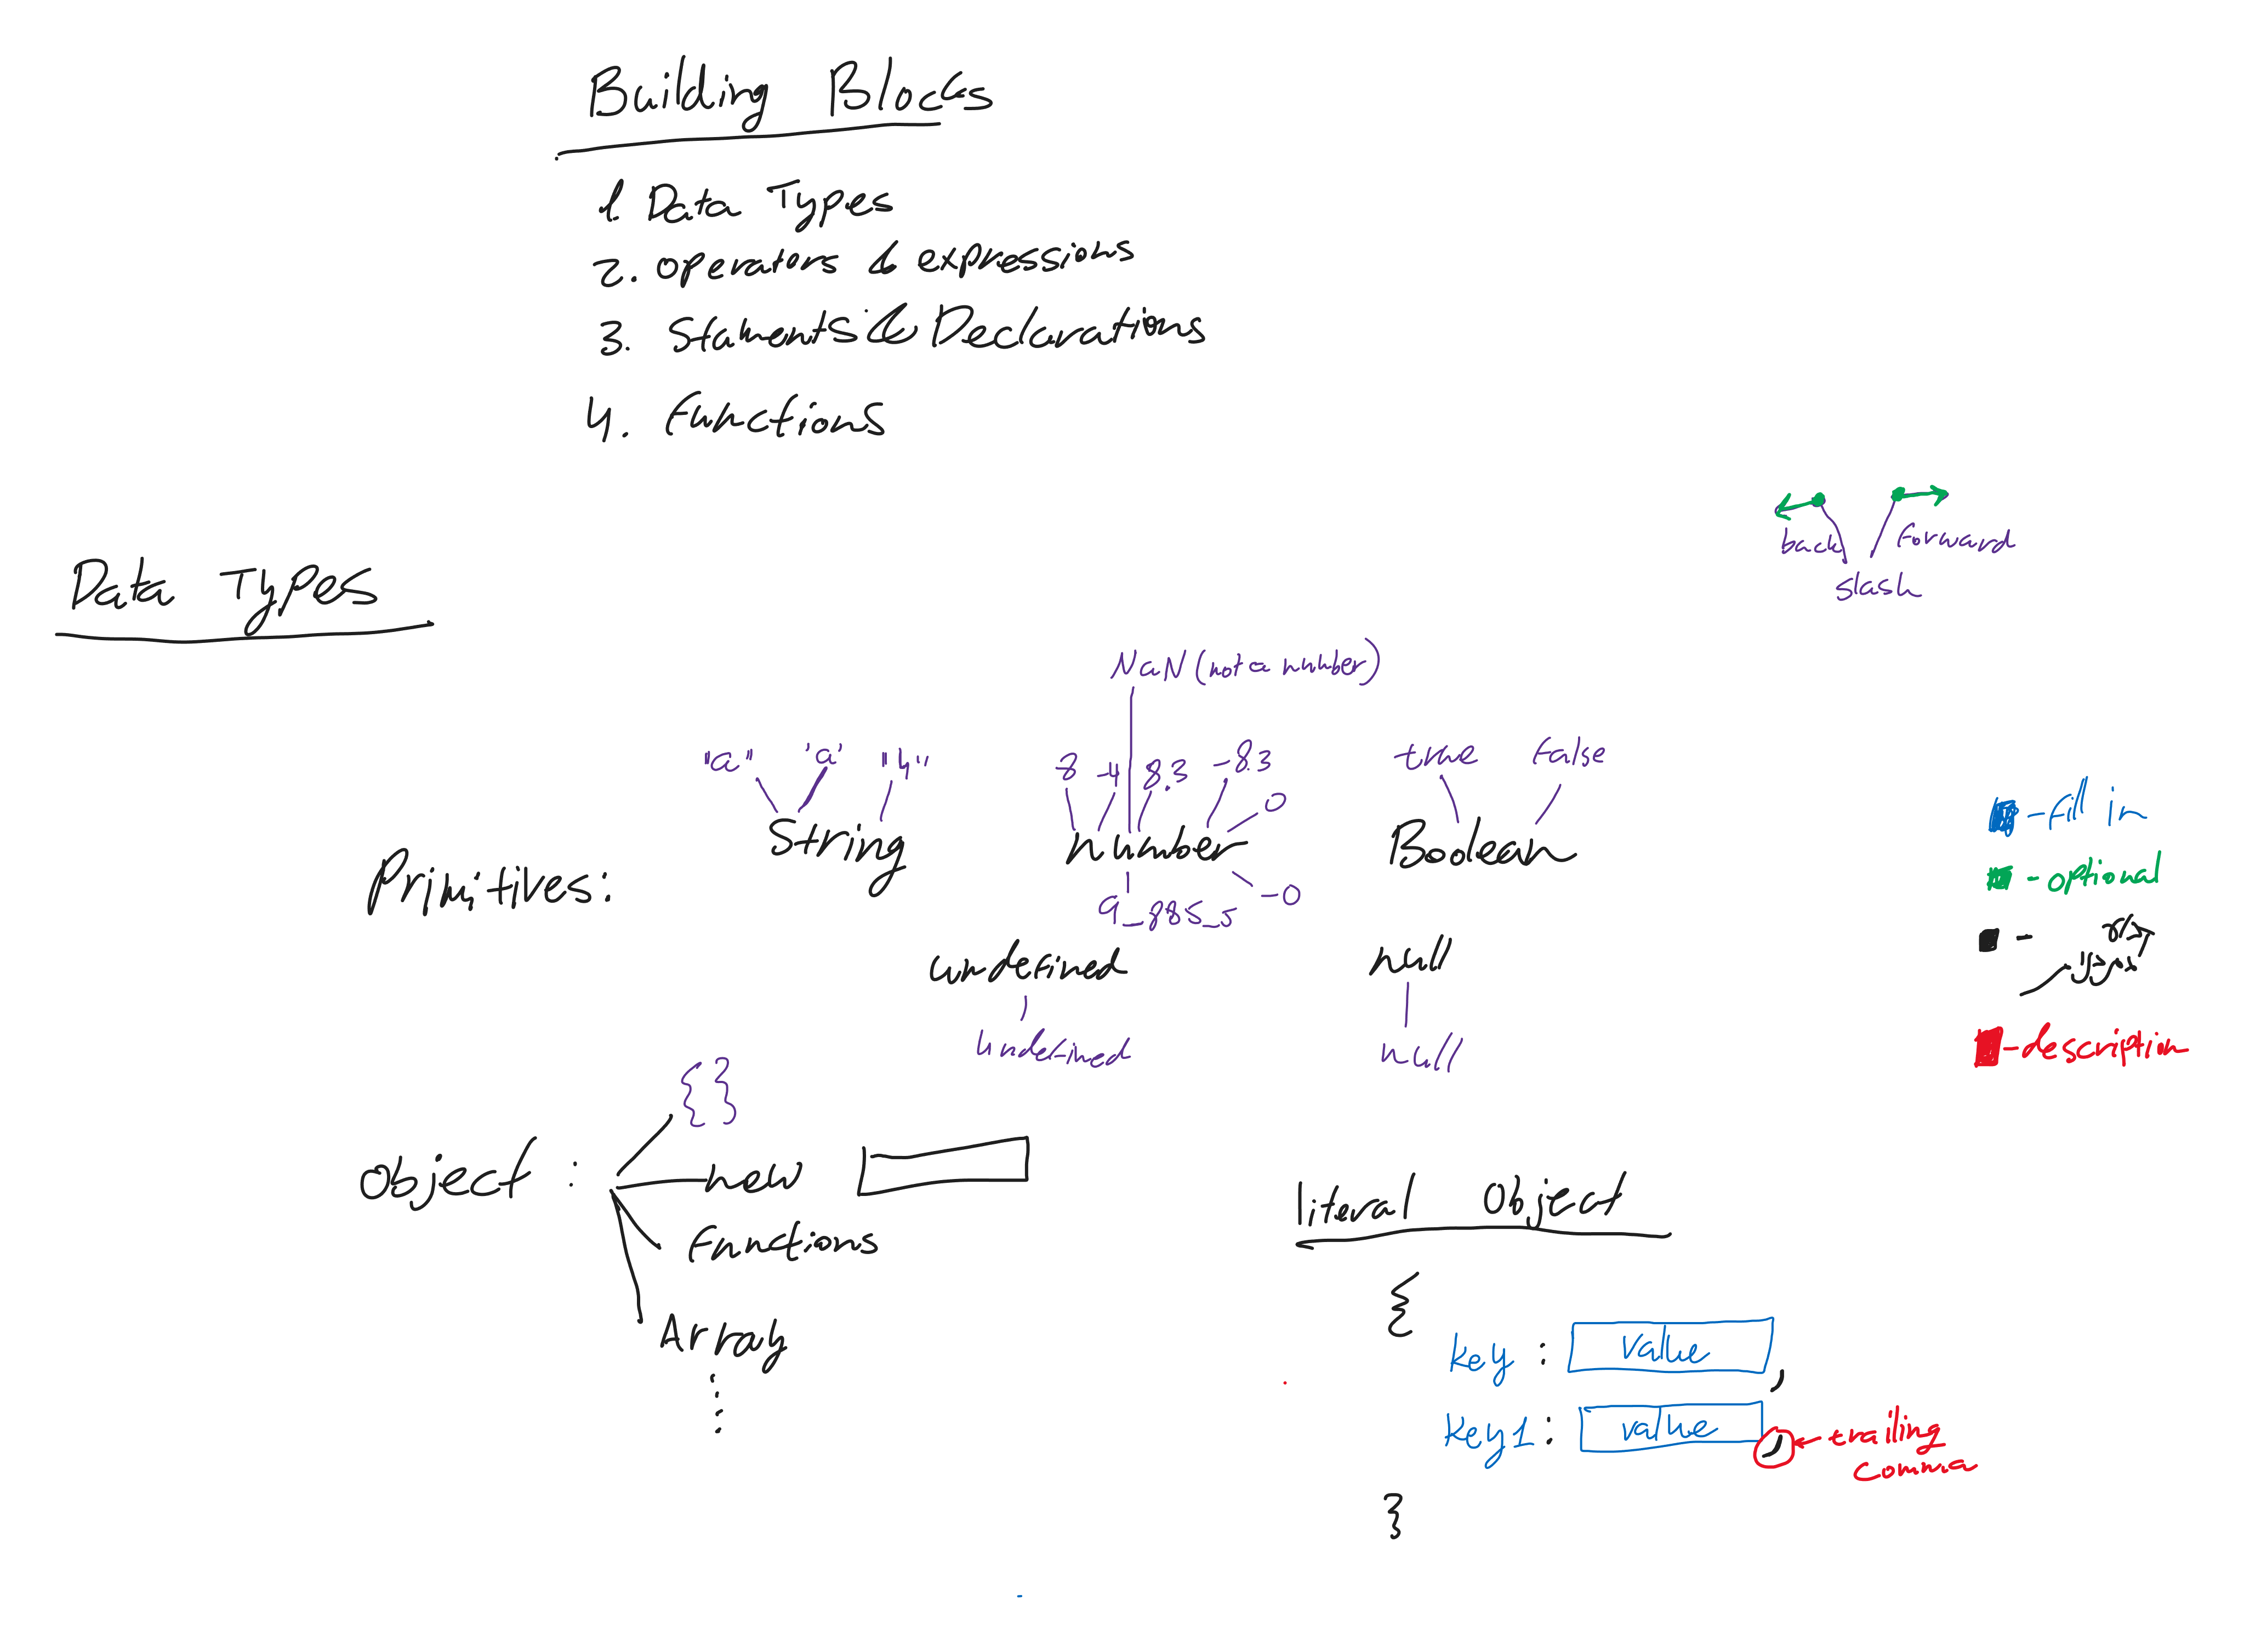 Building Blocks
1. Data Types
2. operators & expressions
3. Staments & Declarations
4. functions
back
forward
slash
Data Types
NaN (not a number)
"a" 'a' "4"
8 -4 8.3 -8.3 0
true false
String
number
Boolean
Primitives:
-0
9_885_5
undefined
null
undefined
null
- fill in
- optional
-
- description
{ }
Object :
new
functions
Array
⋮
literal Object
{
key : value ,
key1 : value ,
trailing
comma
}